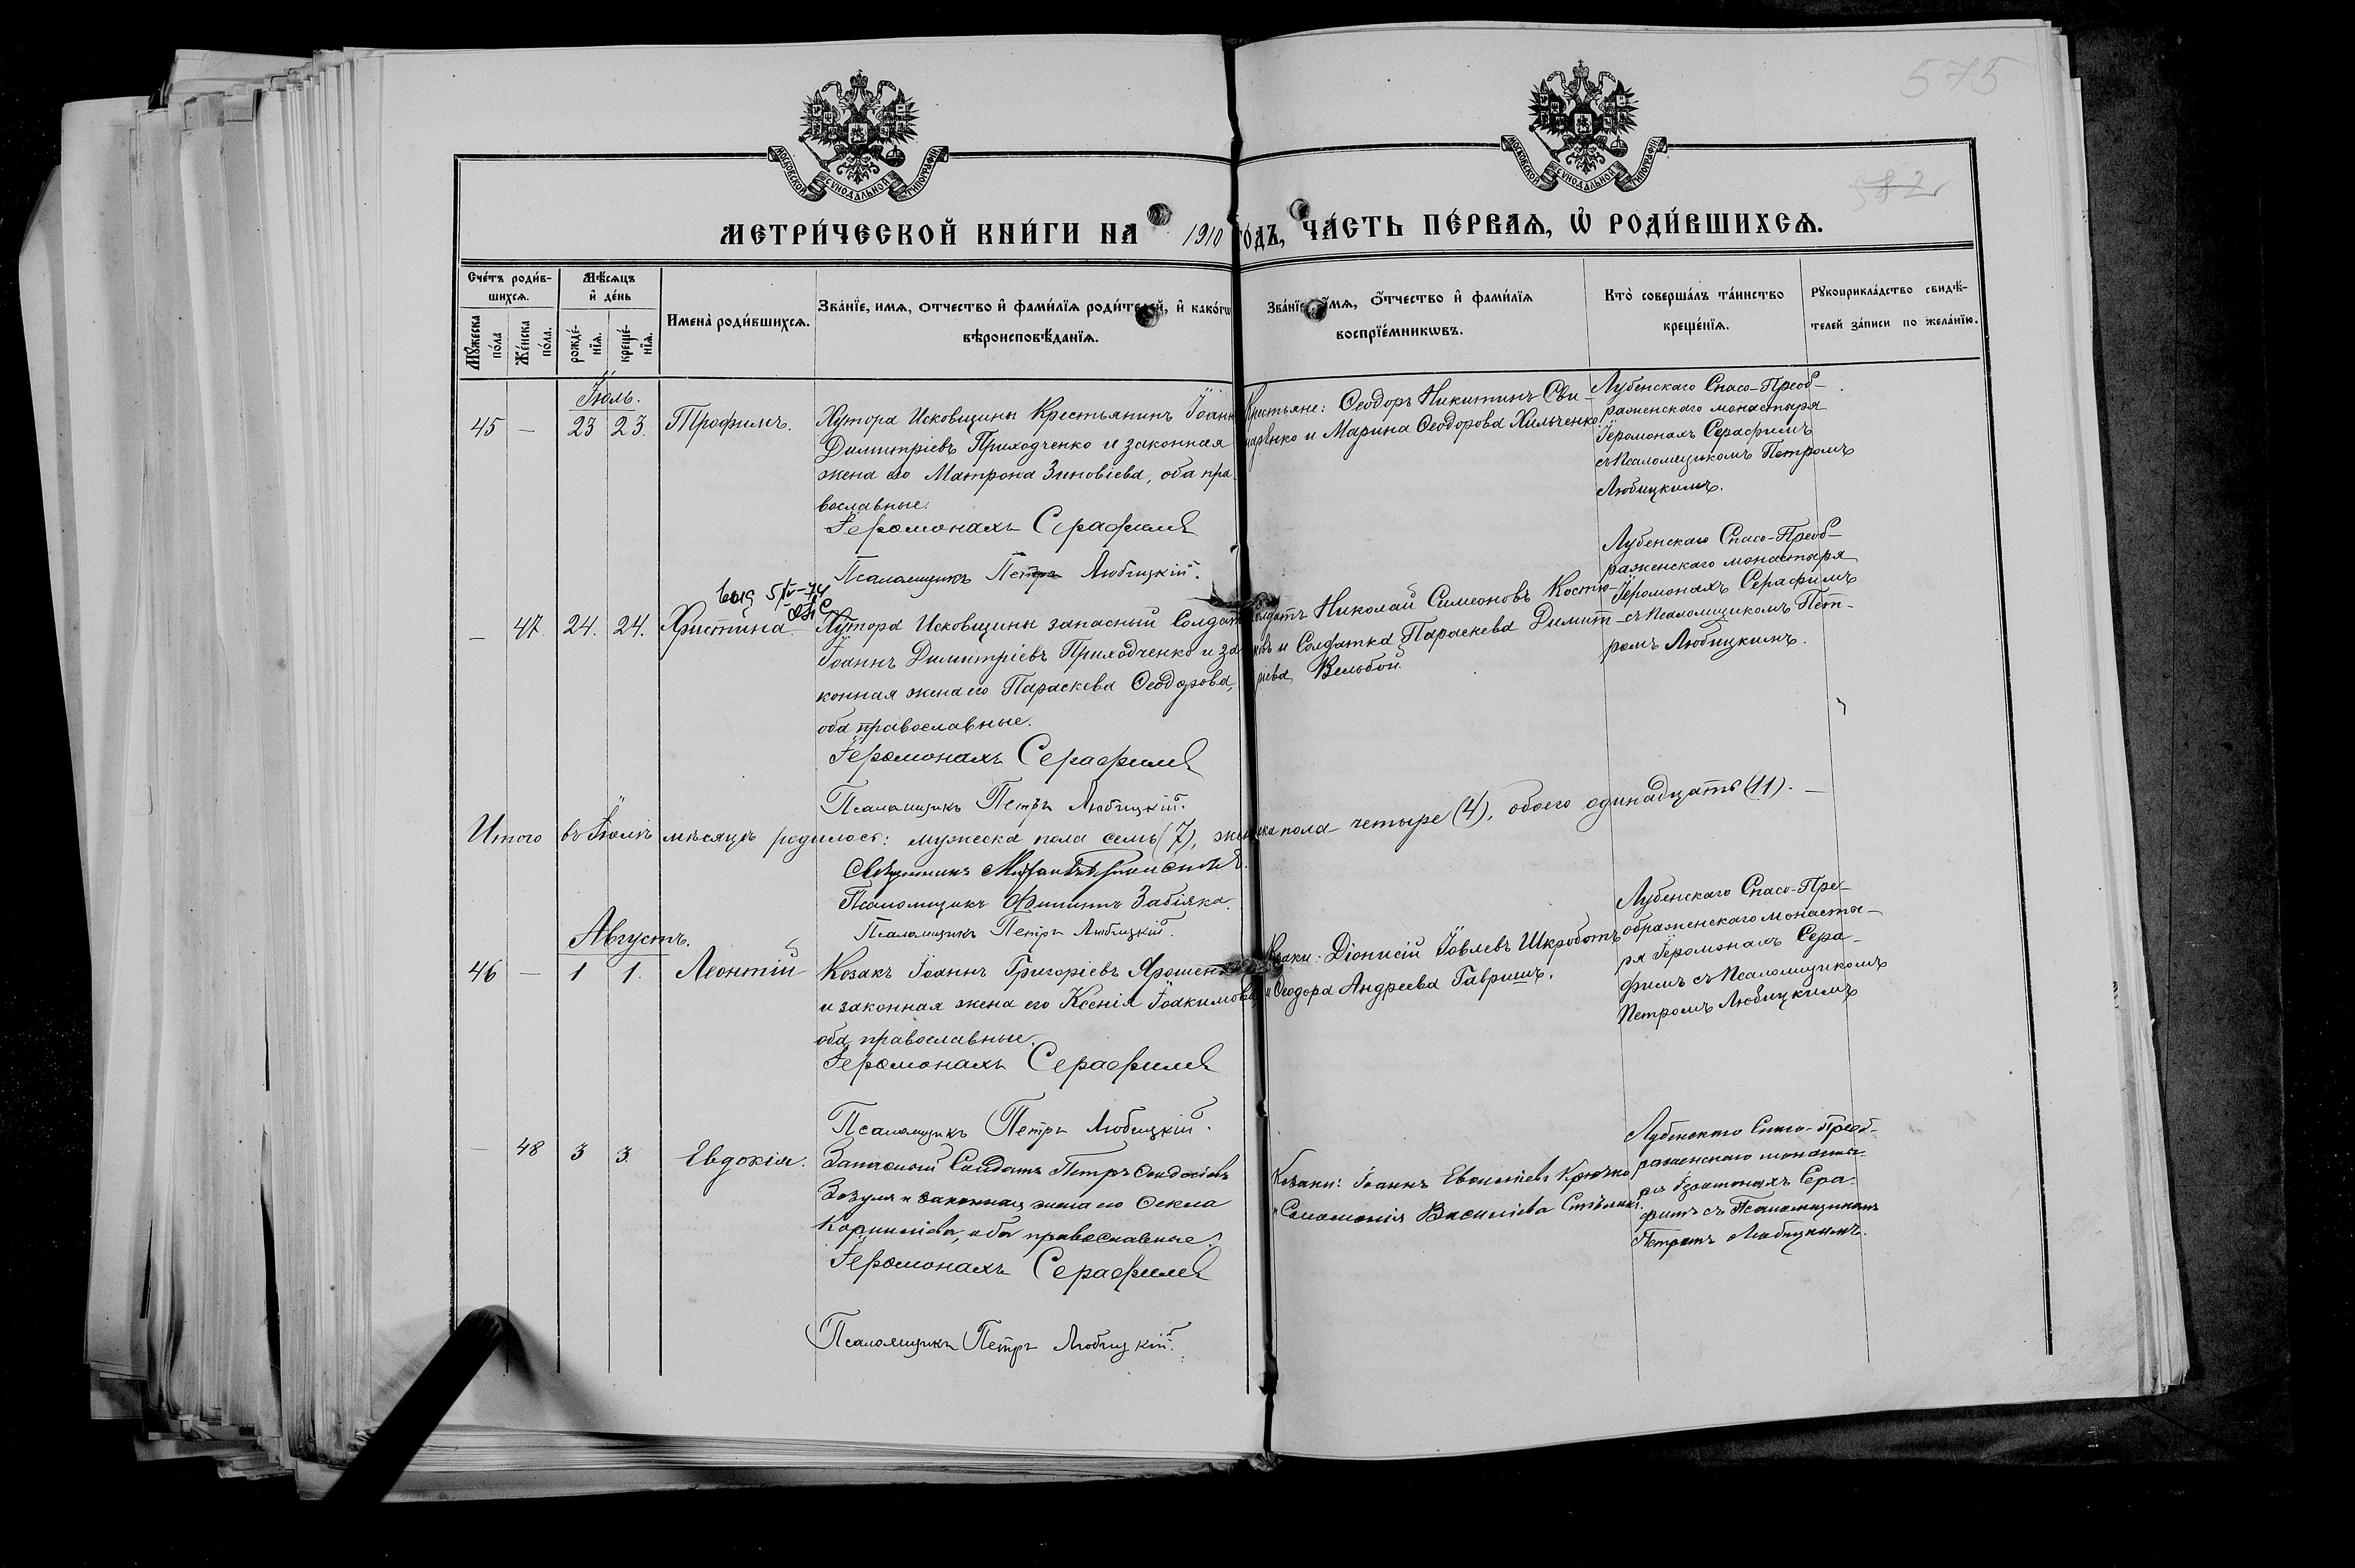 575
МОСКОВСКОЙ СѴНОДАЛЬНОЙ ТИПОГРАФІИ
МОСКОВСКОЙ СѴНОДАЛЬНОЙ ТИПОГРАФІИ
МЕТРИ́ЧЕСКОЙ КНИ́ГИ НА 1910 ГОДЪ, ЧА́СТЬ ПЕ́РВАѦ, Ѡ РОДИ́ВШИХСѦ.
Сче́тъ роди́в-
шихсѧ.
Мꙋжеска по́ла
Же́нска по́ла.
Мѣ́сѧцъ и де́нь
рожде́-нїѧ.
креще́-нїѧ.
Имена̀ роди́вшихсѧ.
Зва́нїе, имѧ, отчество и фами́лїѧ роди́телей, и како́гѡ
вѣроисповѣ́данїѧ.
Зва́нїе, и́мѧ, о́тчество и фами́лїѧ
воспрїе́мникѡвъ.
Кто̀ соверша́лъ та́инство
креще́нїѧ.
Рꙋкоприкла́дство свидѣ́-
телей за́писи по жела́нїю.
Іюль.
45 — 23 23. Трофимъ.
Хутора Исковщины Крестьянинъ Іоаннъ
Димитріевъ Приходченко и законная
жена его Матрона Зиновіева, оба пра-
вославные.
Іеромонахъ Серафимъ
Псаломщикъ Петръ Любицкій.
Крестьяне: Ѳеодоръ Никитинъ Сви-
наренко и Марина Ѳеодорова Хильченко.
Лубенскаго Спасо-Преоб-
раженскаго монастыря
Іеромонахъ Серафимъ
съ Псаломщикомъ Петромъ
Любицкимъ.
— 47 24. 24. Христина.
Хутора Исковщины запасный Солдатъ
Іоаннъ Димитріевъ Приходченко и за-
конная жена его Параскева Ѳеодорова,
оба православные.
Іеромонахъ Серафимъ
Псаломщикъ Петръ Любицкій.
Солдатъ Николай Симеоновъ Костю-
ковъ и Солдатка Параскева Димит-
ріева Вельбой.
Лубенскаго Спасо-Преоб-
раженскаго монастыря
Іеромонахъ Серафимъ
съ Псаломщикомъ Пет-
ромъ Любицкимъ.
Итого въ Іюлѣ мѣсяцѣ родилось: мужеска пола семь (7), женска пола четыре (4), обоего одинадцать (11). —
Священникъ
Псаломщикъ Филиппъ Забіяка.
Псаломщикъ Петръ Любицкій.
Августъ.
46 — 1 1. Леонтій
Козакъ Іоаннъ Григоріевъ Ярошенко
и законная жена его Ксенія Іоакимова
оба православные.
Іеромонахъ Серафимъ
Псаломщикъ Петръ Любицкій.
Козаки: Діонисій Іовлевъ Шкроботъ
и Ѳеодора Андреева Гавришъ.
Лубенскаго Спасо-Пре-
ображенскаго монасты-
ря Іеромонахъ Сера-
фимъ съ Псаломщикомъ
Петромъ Любицкимъ
— 48 3 3. Евдокія.
Запасный Солдатъ Петръ Ѳеодосіевъ
Зозуля и законная жена его Ѳекла
Корниліева, оба православные.
Іеромонахъ Серафимъ
Псаломщикъ Петръ Любицкій.
Козаки: Іоаннъ Крючко
и Соломонія Василіева
Лубенскаго Спасо-Преоб-
раженскаго монасты-
ря Іеромонахъ Сера-
фимъ съ Псаломщикомъ
Петромъ Любицкимъ.